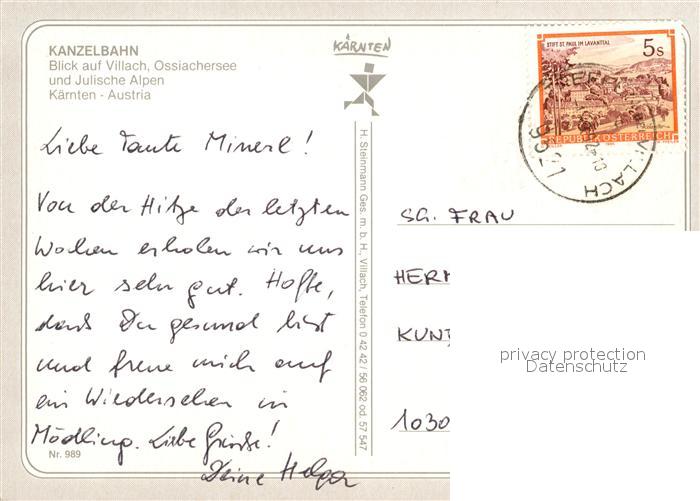 KANZELBAHN
Blick auf Villach, Ossiachersee
und Julische Alpen
Kärnten - Austria
KÄRNTEN
STIFT ST. PAUL IM LAVANTTAL
5s
REPUBLIK ÖSTERREICH
VILLACH
9521
Liebe Tante Minerl!
Von der Hitze der letzten
Wochen erholen wir uns
hier sehr gut. Hoffe,
dass Du gesund bist
und freue mich auf
ein Wiedersehen in
Mödling. Liebe Grüsse!
Deine Helga
Nr. 989
H. Steinmann Ges. m. b. H., Villach, Telefon 0 42 42 / 56 062 od. 57 547
SG. FRAU
HERM
KUNT
1030
privacy protection
Datenschutz